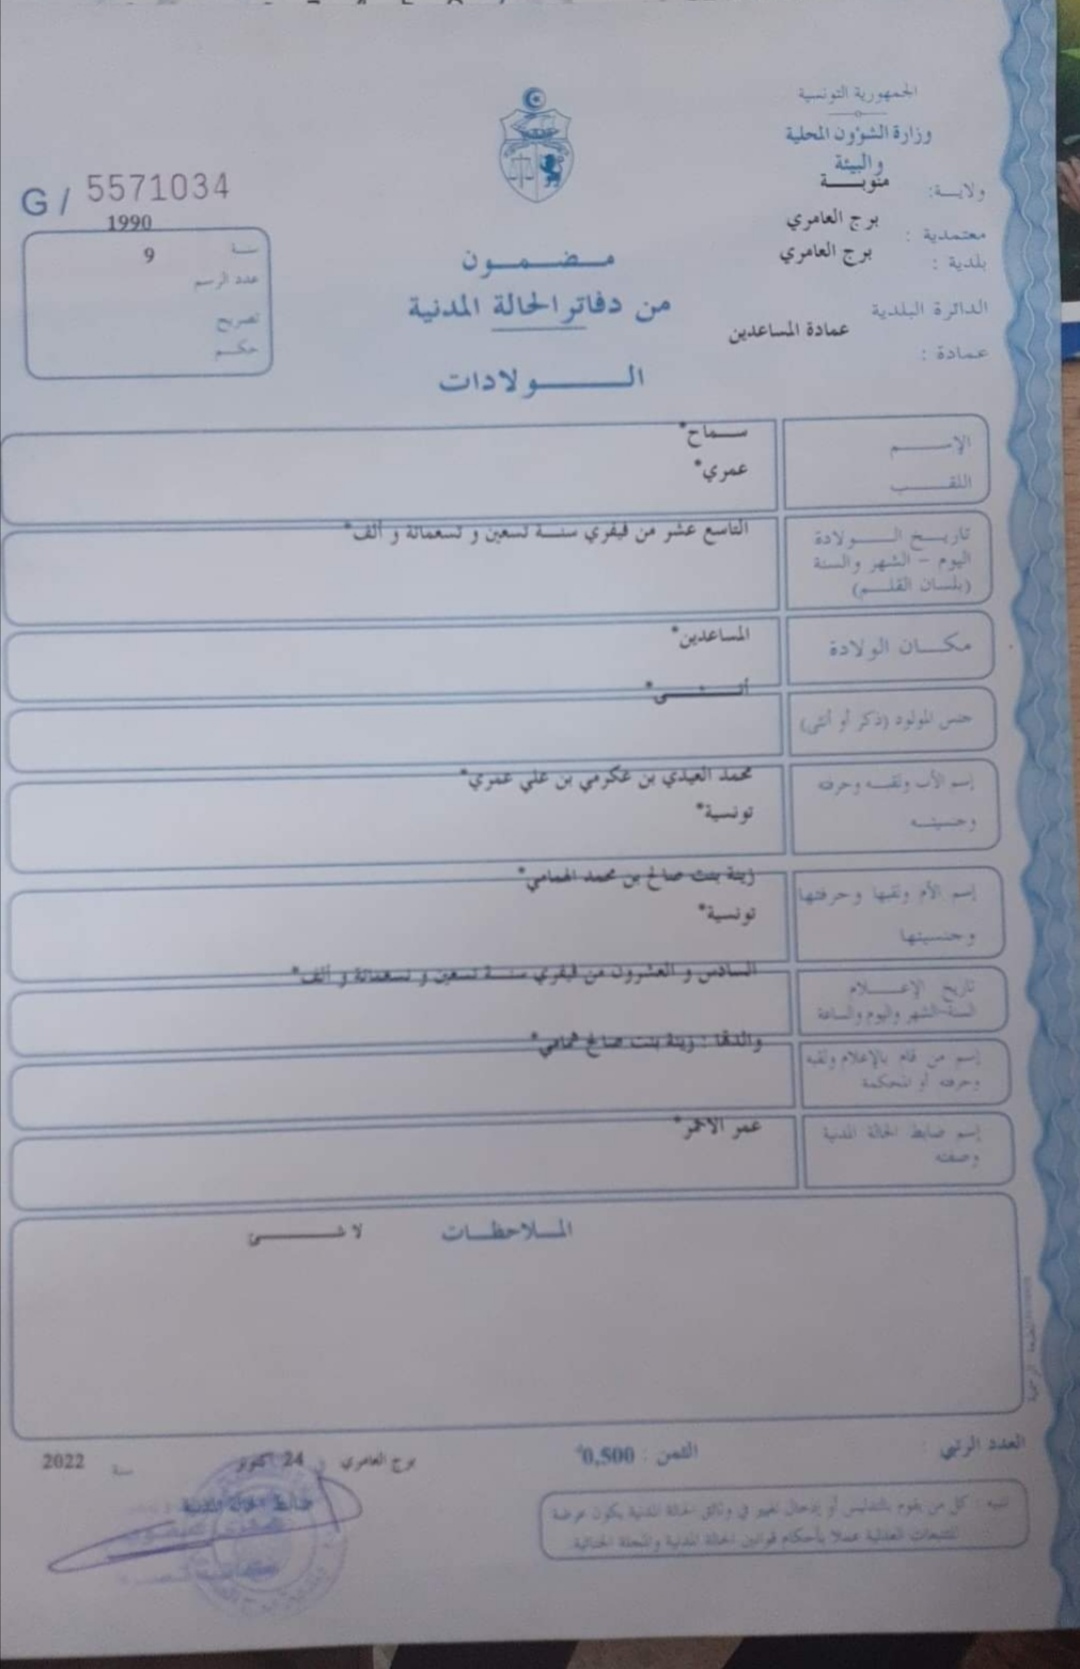 الجمهورية التونسية
وزارة الشؤون المحلية
والبيئة
ولايـــة: منوبـــــة
معتمدية : برج العامري
بلدية : برج العامري
الدائرة البلدية
عمادة المساعدين
عمادة :
G / 5571034
1990
سنـــة
9
عدد الرسم
تصريح
حكـــم
مـــضـــمـــــون
من دفاتر الحالة المدنية
الـــــــــولادات
الإســـــــم
ســـــماح*
اللقـــــــب
عمري*
تاريـــخ الــــــولادة
اليوم – الشهر والسنة
(بلسان القلـــم)
التاسع عشر من فيفري سنـــة تسعين و تسعمائة و ألف*
مكــــــان الولادة
المساعدين*
جنس المولود (ذكر أو أنثى)
أنـــــثـــــــى*
إسم الأب ولقبـــه وحرفته
محمد العيدي بن عكرمي بن علي عمري*
وجنسيتـــه
تونسية*
إسم الأم ولقبها وحرفتها
زينة بنت صالح بن محمد الهمامي*
وجنسيتها
تونسية*
تاريخ الإعـــــلام
السنة-الشهر واليوم والساعة
السادس و العشرون من فيفري سنـــة تسعين و تسعمائة و ألف*
إسم من قام بالإعلام ولقبه
وحرفته أو المحكمة
والدتها : زينة بنت صالح همامي*
إسم ضابط الحالة المدنية
وصفته
عمر الاحمر*
المـــلاحظـــات
لا شـــــــــئ
العدد الرتبي
الثمن : 0,500
برج العامري
في 24 أكتوبر
سنة 2022
تنبيه : كل من يقوم بالتدليس أو إدخال تغيير في وثائق الحالة المدنية يكون عرضة
للتتبعات العدلية عملا بأحكام قوانين الحالة المدنية والمجلة الجنائية.
ضابط الحالة المدنية